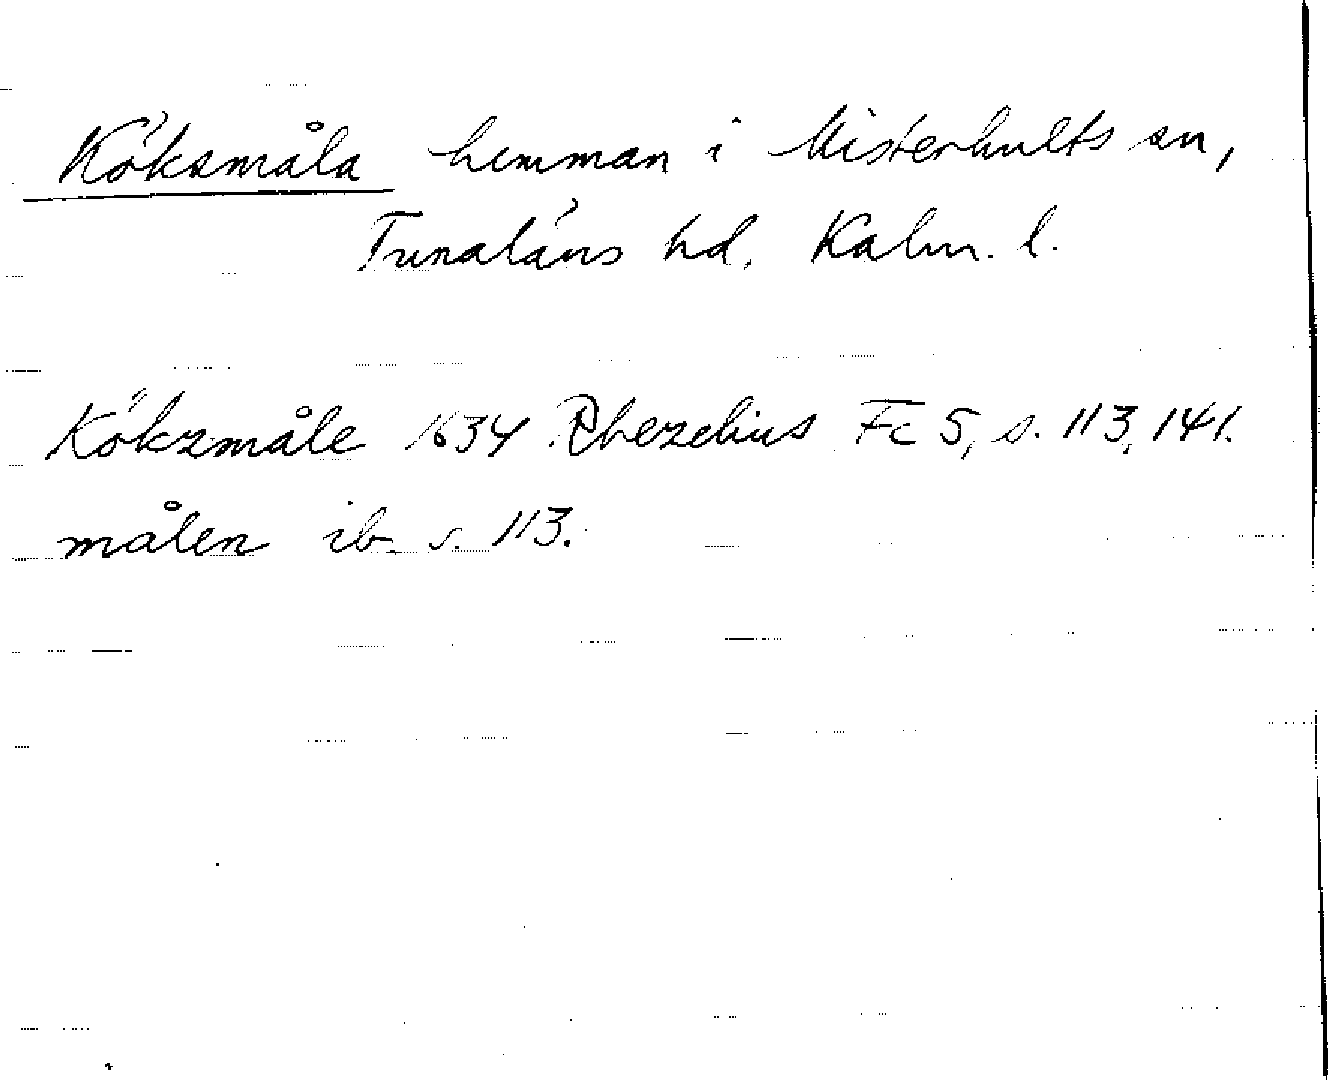 Köksmåla hemman i Misterhults sn,
Tunaläns hd, Kalm. l.
Köksmåle 1634 Rhezelius Fc 5, s. 113, 141.
målen ib. s. 113.